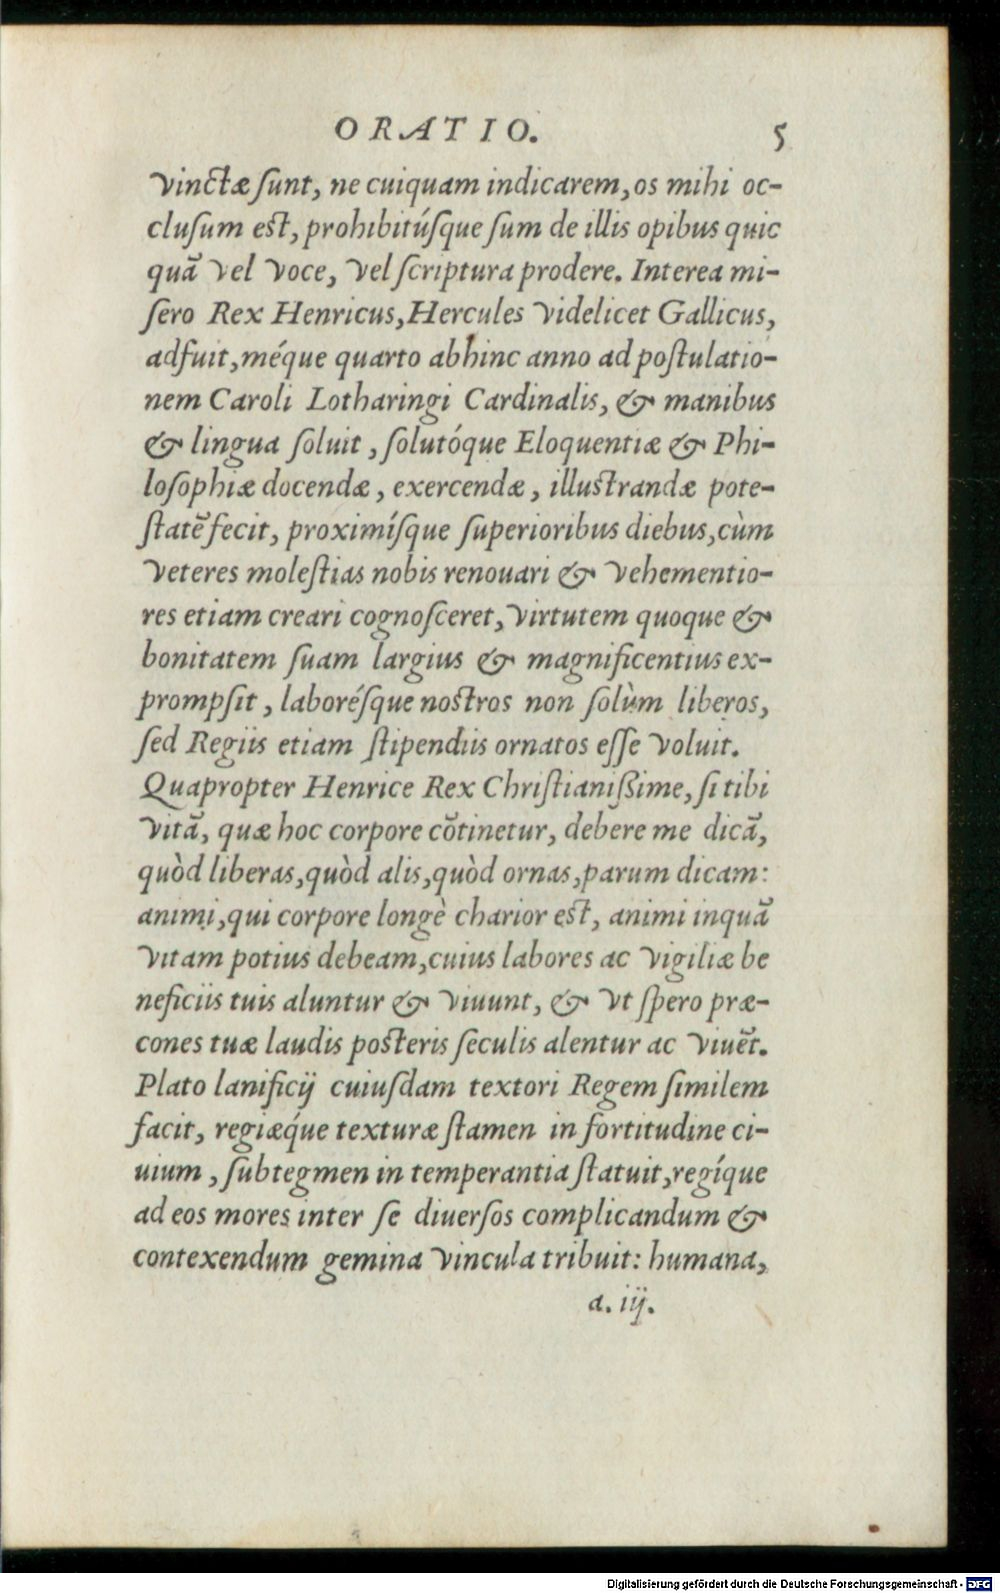 ORATIO. 5
vinctæ ſunt, ne cuiquam indicarem, os mihi oc-
cluſum eſt, prohibitúſque ſum de illis opibus quic
quã vel voce, vel ſcriptura prodere. Interea mi-
ſero Rex Henricus, Hercules videlicet Gallicus,
adfuit, méque quarto abhinc anno ad poſtulatio-
nem Caroli Lotharingi Cardinalis, & manibus
& lingua ſoluit, ſolutóque Eloquentiæ & Phi-
loſophiæ docendæ, exercendæ, illuſtrandæ pote-
ſtatẽ fecit, proximíſque ſuperioribus diebus, cùm
veteres moleſtias nobis renouari & vehementio-
res etiam creari cognoſceret, virtutem quoque &
bonitatem ſuam largius & magnificentius ex-
prompſit, laboréſque noſtros non ſolùm liberos,
ſed Regiis etiam ſtipendiis ornatos eſſe voluit.
Quapropter Henrice Rex Chriſtianiſſime, ſi tibi
vitã, quæ hoc corpore cõtinetur, debere me dicã,
quòd liberas, quòd alis, quòd ornas, parum dicam:
animi, qui corpore longè charior eſt, animi inquã
vitam potius debeam, cuius labores ac vigiliæ be
neficiis tuis aluntur & viuunt, & vt ſpero præ-
cones tuæ laudis poſteris ſeculis alentur ac viuẽt.
Plato lanificij cuiuſdam textori Regem ſimilem
facit, regiæq́ue texturæ ſtamen in fortitudine ci-
uium, ſubtegmen in temperantia ſtatuit, regíque
ad eos mores inter ſe diuerſos complicandum &
contexendum gemina vincula tribuit: humana,
a. iij.
Digitalisierung gefördert durch die Deutsche Forschungsgemeinschaft - DFG